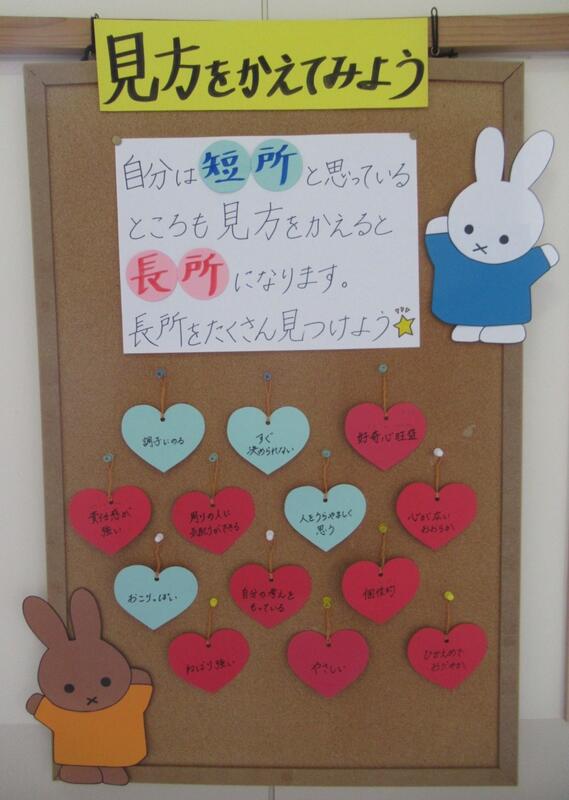 見方をかえてみよう
自分は短所と思っている
ところも見方をかえると
長所になります。
長所をたくさん見つけよう
調子にのる
すぐ
決められない
好奇心旺盛
責任感が
強い
周りの人に
気配りができる
人をうらやましく
思う
心が広い
おおらか
おこりっぽい
自分の考えを
もっている
個性的
ねばり強い
やさしい
ひかえめで
おだやか